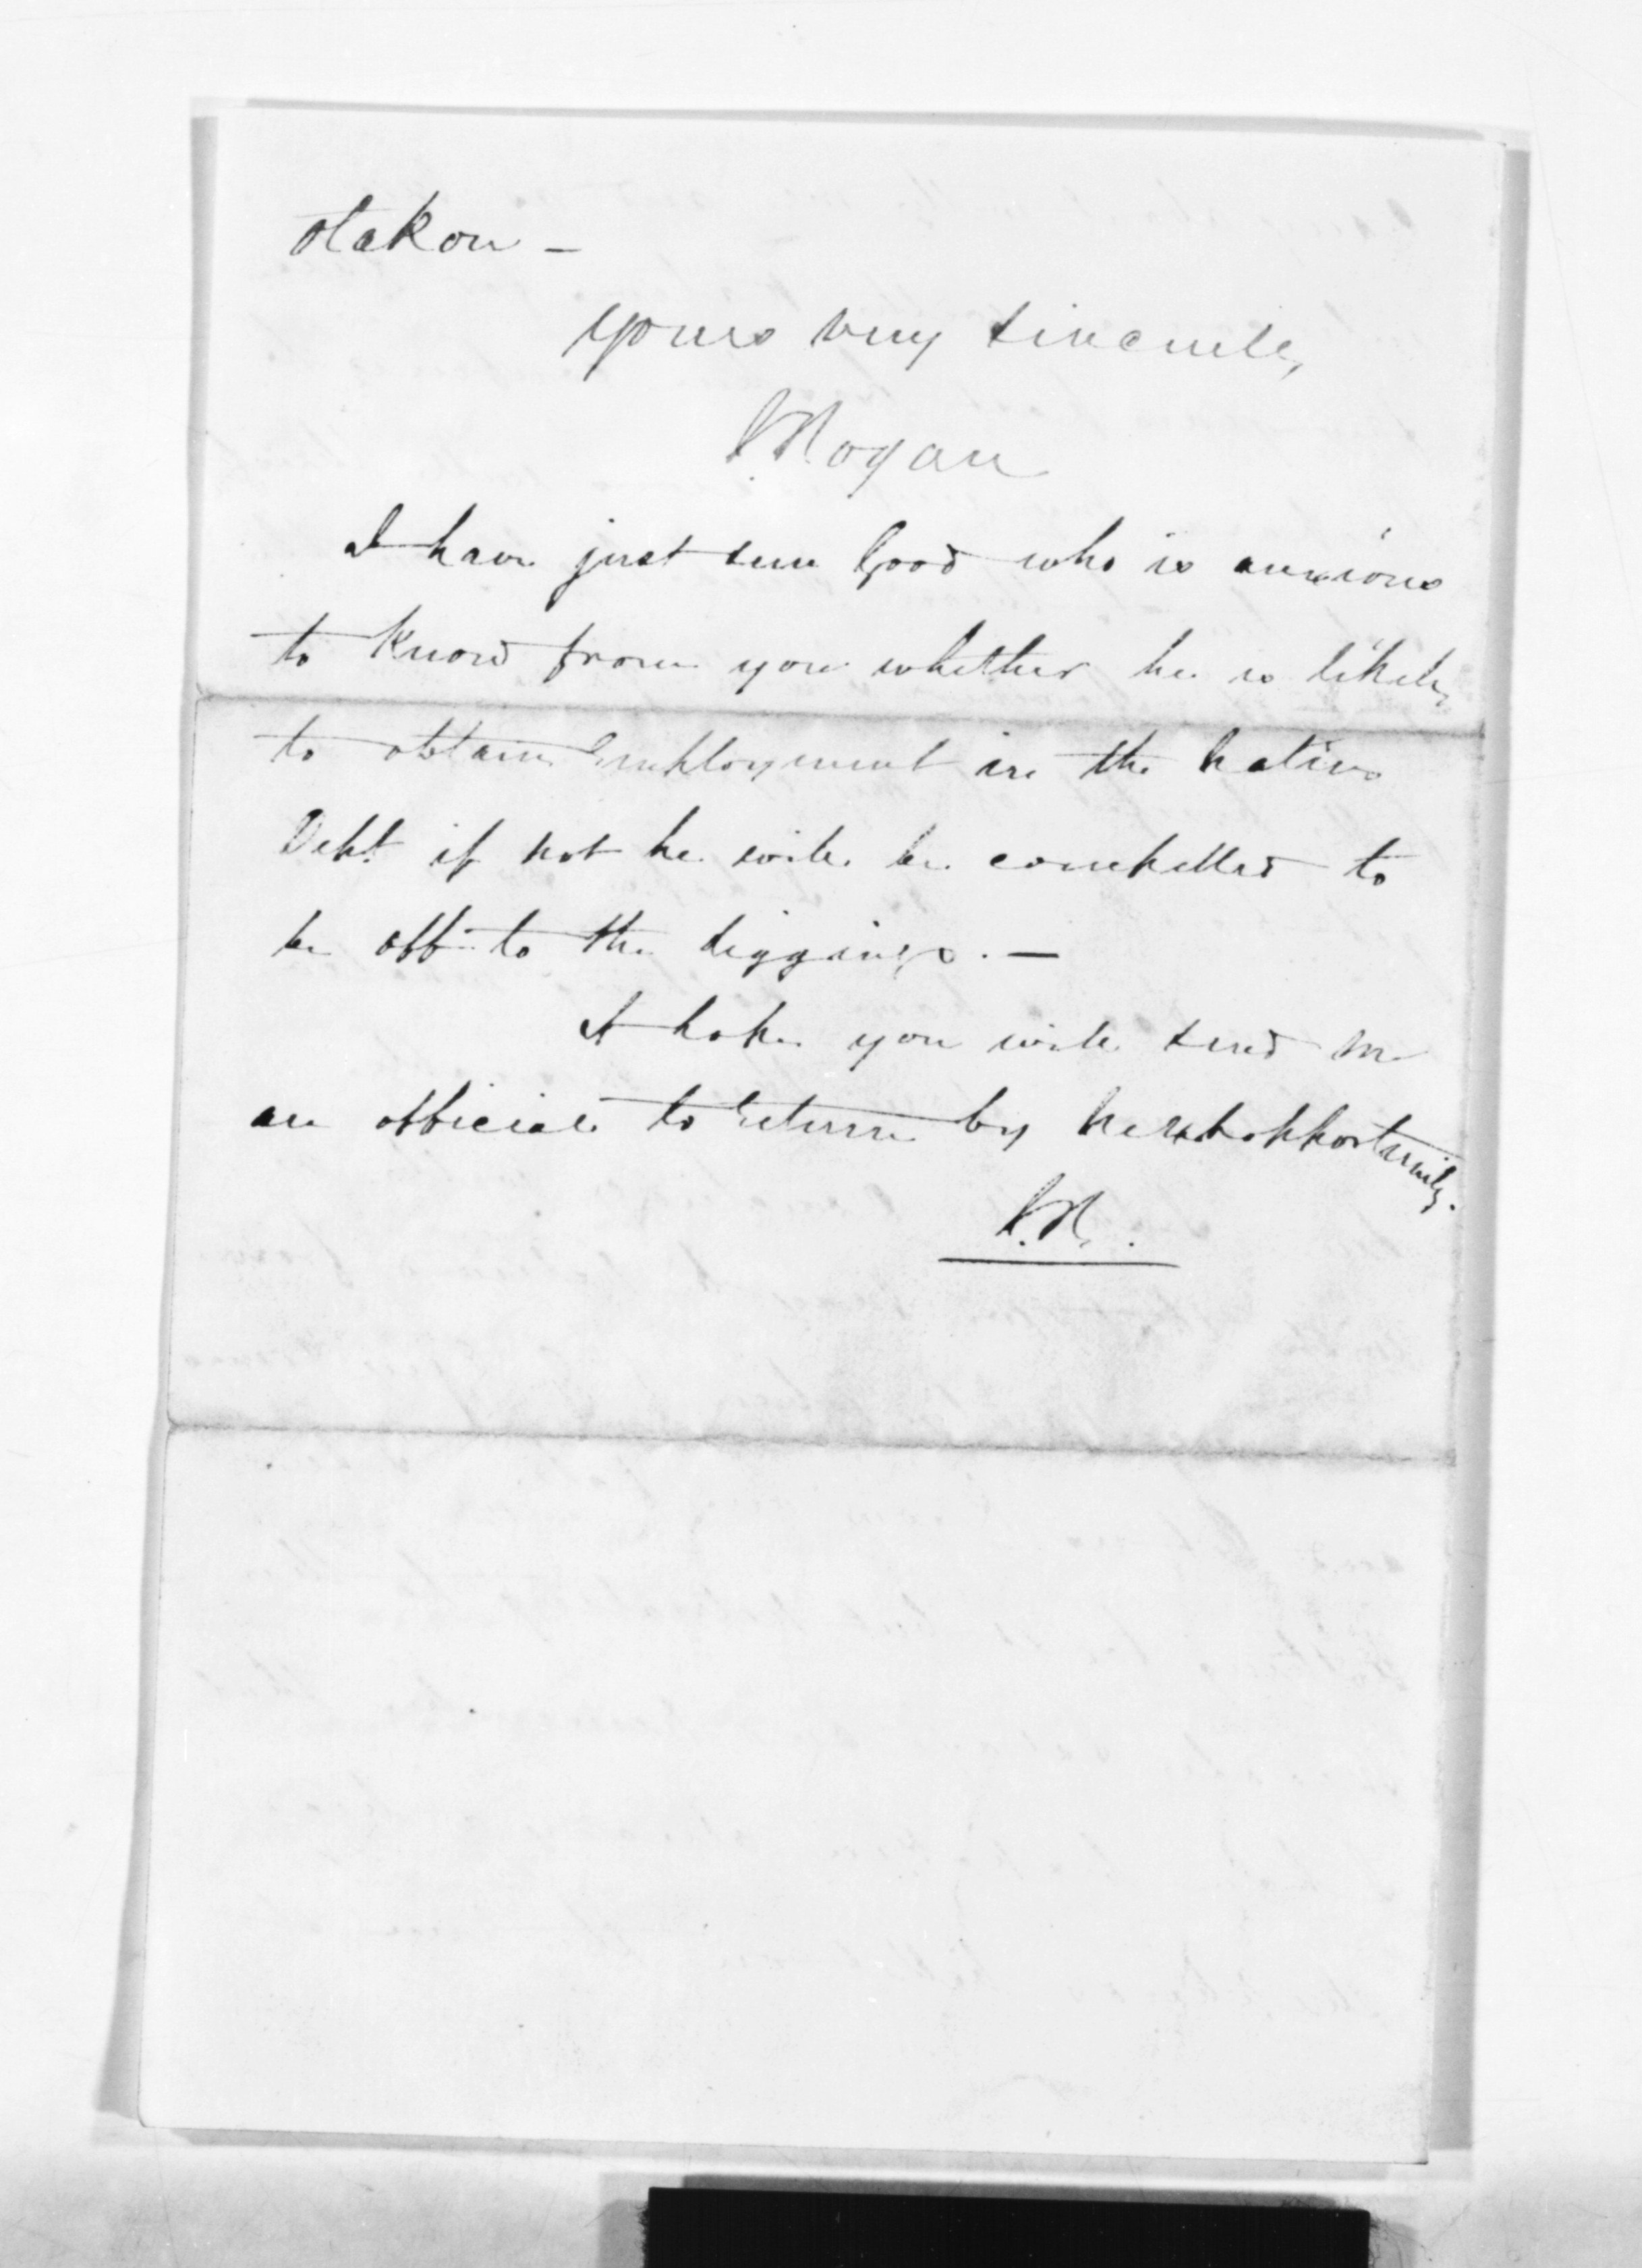 otakou –
Yours very sincerely
J Rogan
I have just seen Good who is anxious
to Know from you whether he is likely
to obtain Employment in the Native
Dept. if not he will be compelled to
be off to the diggings. –
I hope you will send me
an official to return by next opportunity.
J.R.